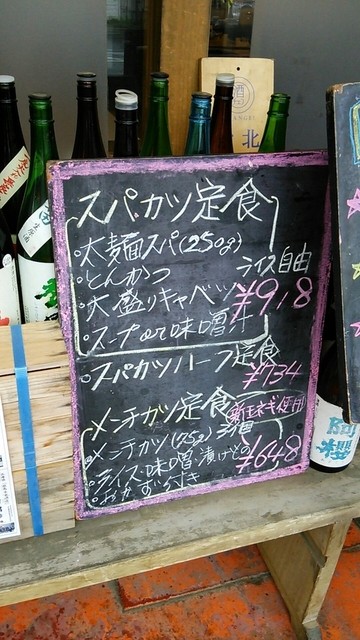 スパカツ定食
・太麺スパ(250g)
・とんかつ
ライス自由
・大盛りキャベツ
¥918
・スープor味噌汁
・スパカツハーフ定食
¥754
・メンチカツ定食
新玉ネギ使用
・メンチカツ(75g)
・ライス・味噌・漬けもの
・おかず
¥648
北